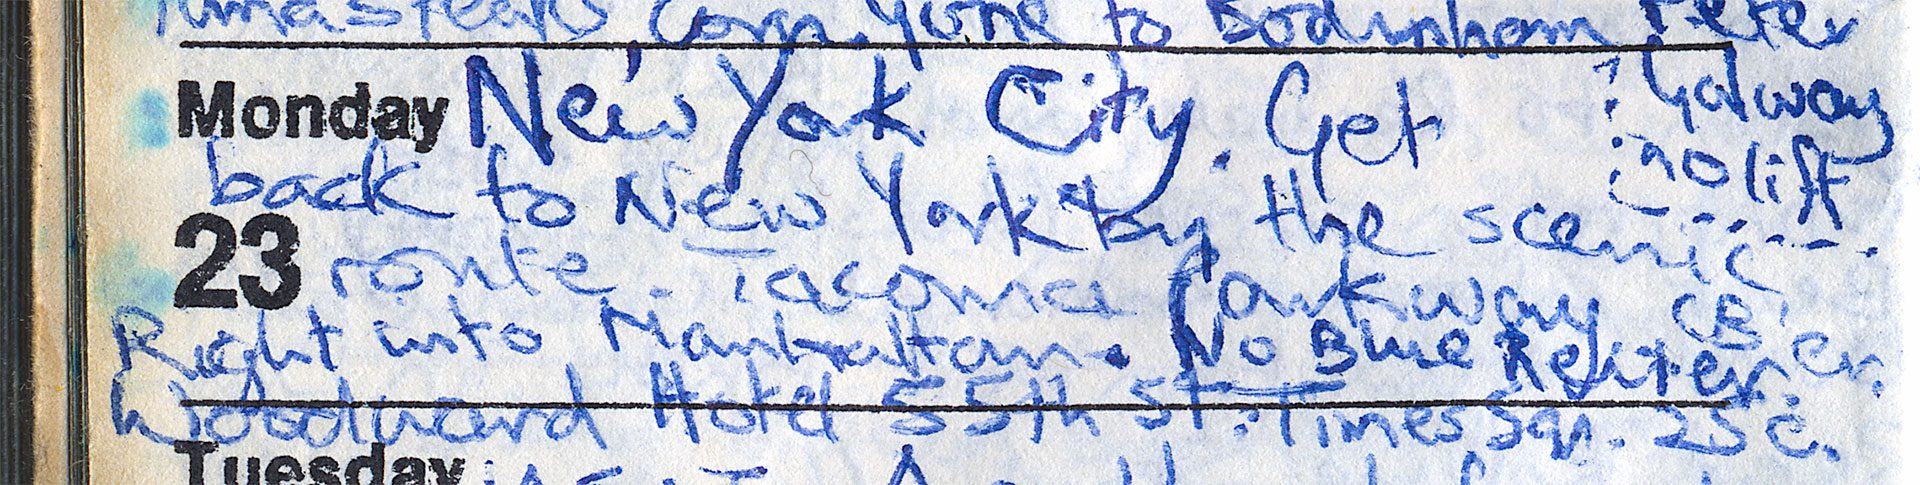 steaks, Corn. Gone to Bodinham Peter
Monday New York City. Get : Galway
back to New York by the scenic no lift
23 route. Tacoma Parkway CB'er.
Right into Manhattan. No Blue
Woodward Hotel 55th St. Times Sqr. 25c.
Tuesday